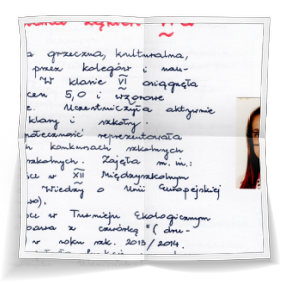 a grzeczna, kulturalna,
przez kolegów i nau-
W klasie VI osiągnęła
cen 5,0 i wzorowe
e. Uczestniczyła aktywnie
klasy i szkoły.
połeczność reprezentowała
h konkursach szkolnych
zkolnych. Zajęła m. in.:
ce w XII Międzyszkolnym
Wiedzy o Unii Europejskiej
wo),
ce w Turnieju Ekologicznym
prawa z czwórką" (dru-
w roku szk. 2013/2014.